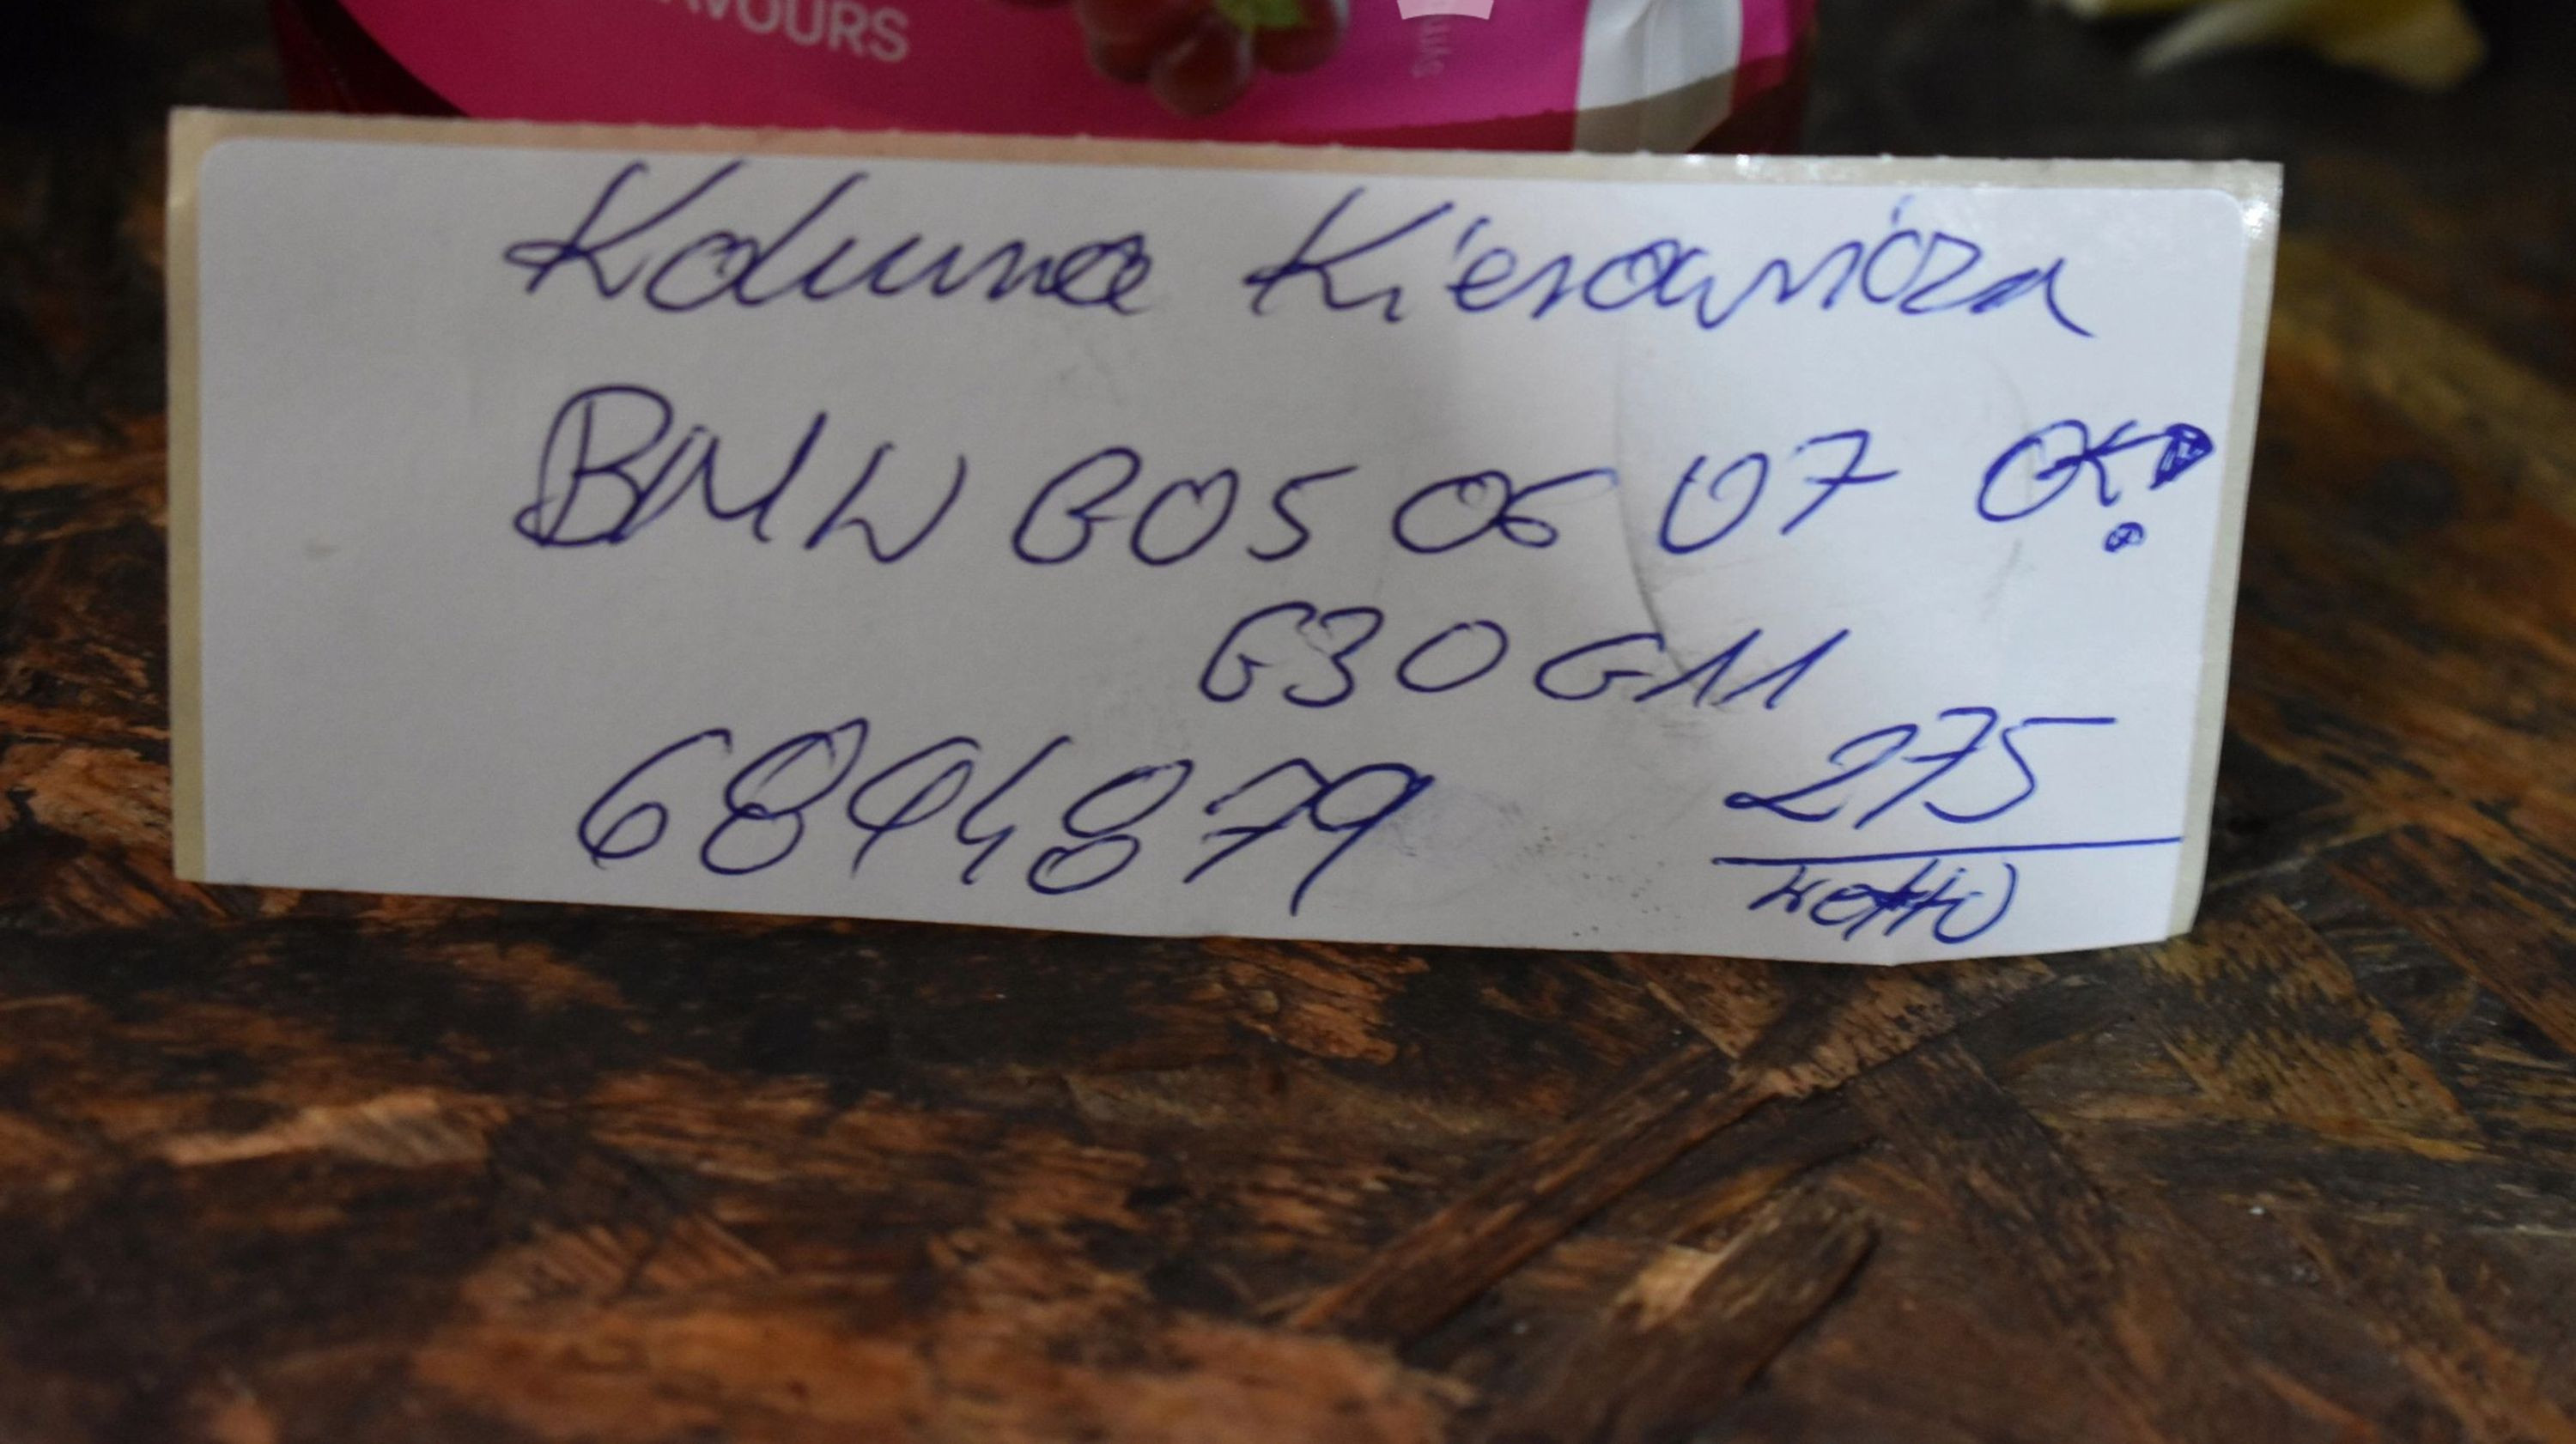 AVOURS
Kolumna Kierownicza
BMW G05 06 07 OK
G30 G11
6894879
275
netto